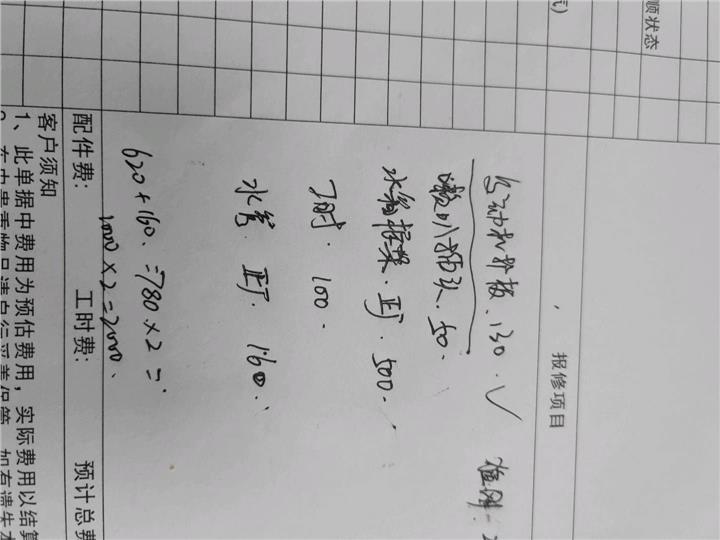 顺状态
报修项目
发动机护板.130.✓
喇叭插头.50.
水箱框架.正厂.500.
工时.100.
水管.正厂.160.
620+160.=780×2=
1000×2=2000.
配件费: 工时费: 预计总费
客户须知
1、此单据中费用为预估费用,实际费用以结算